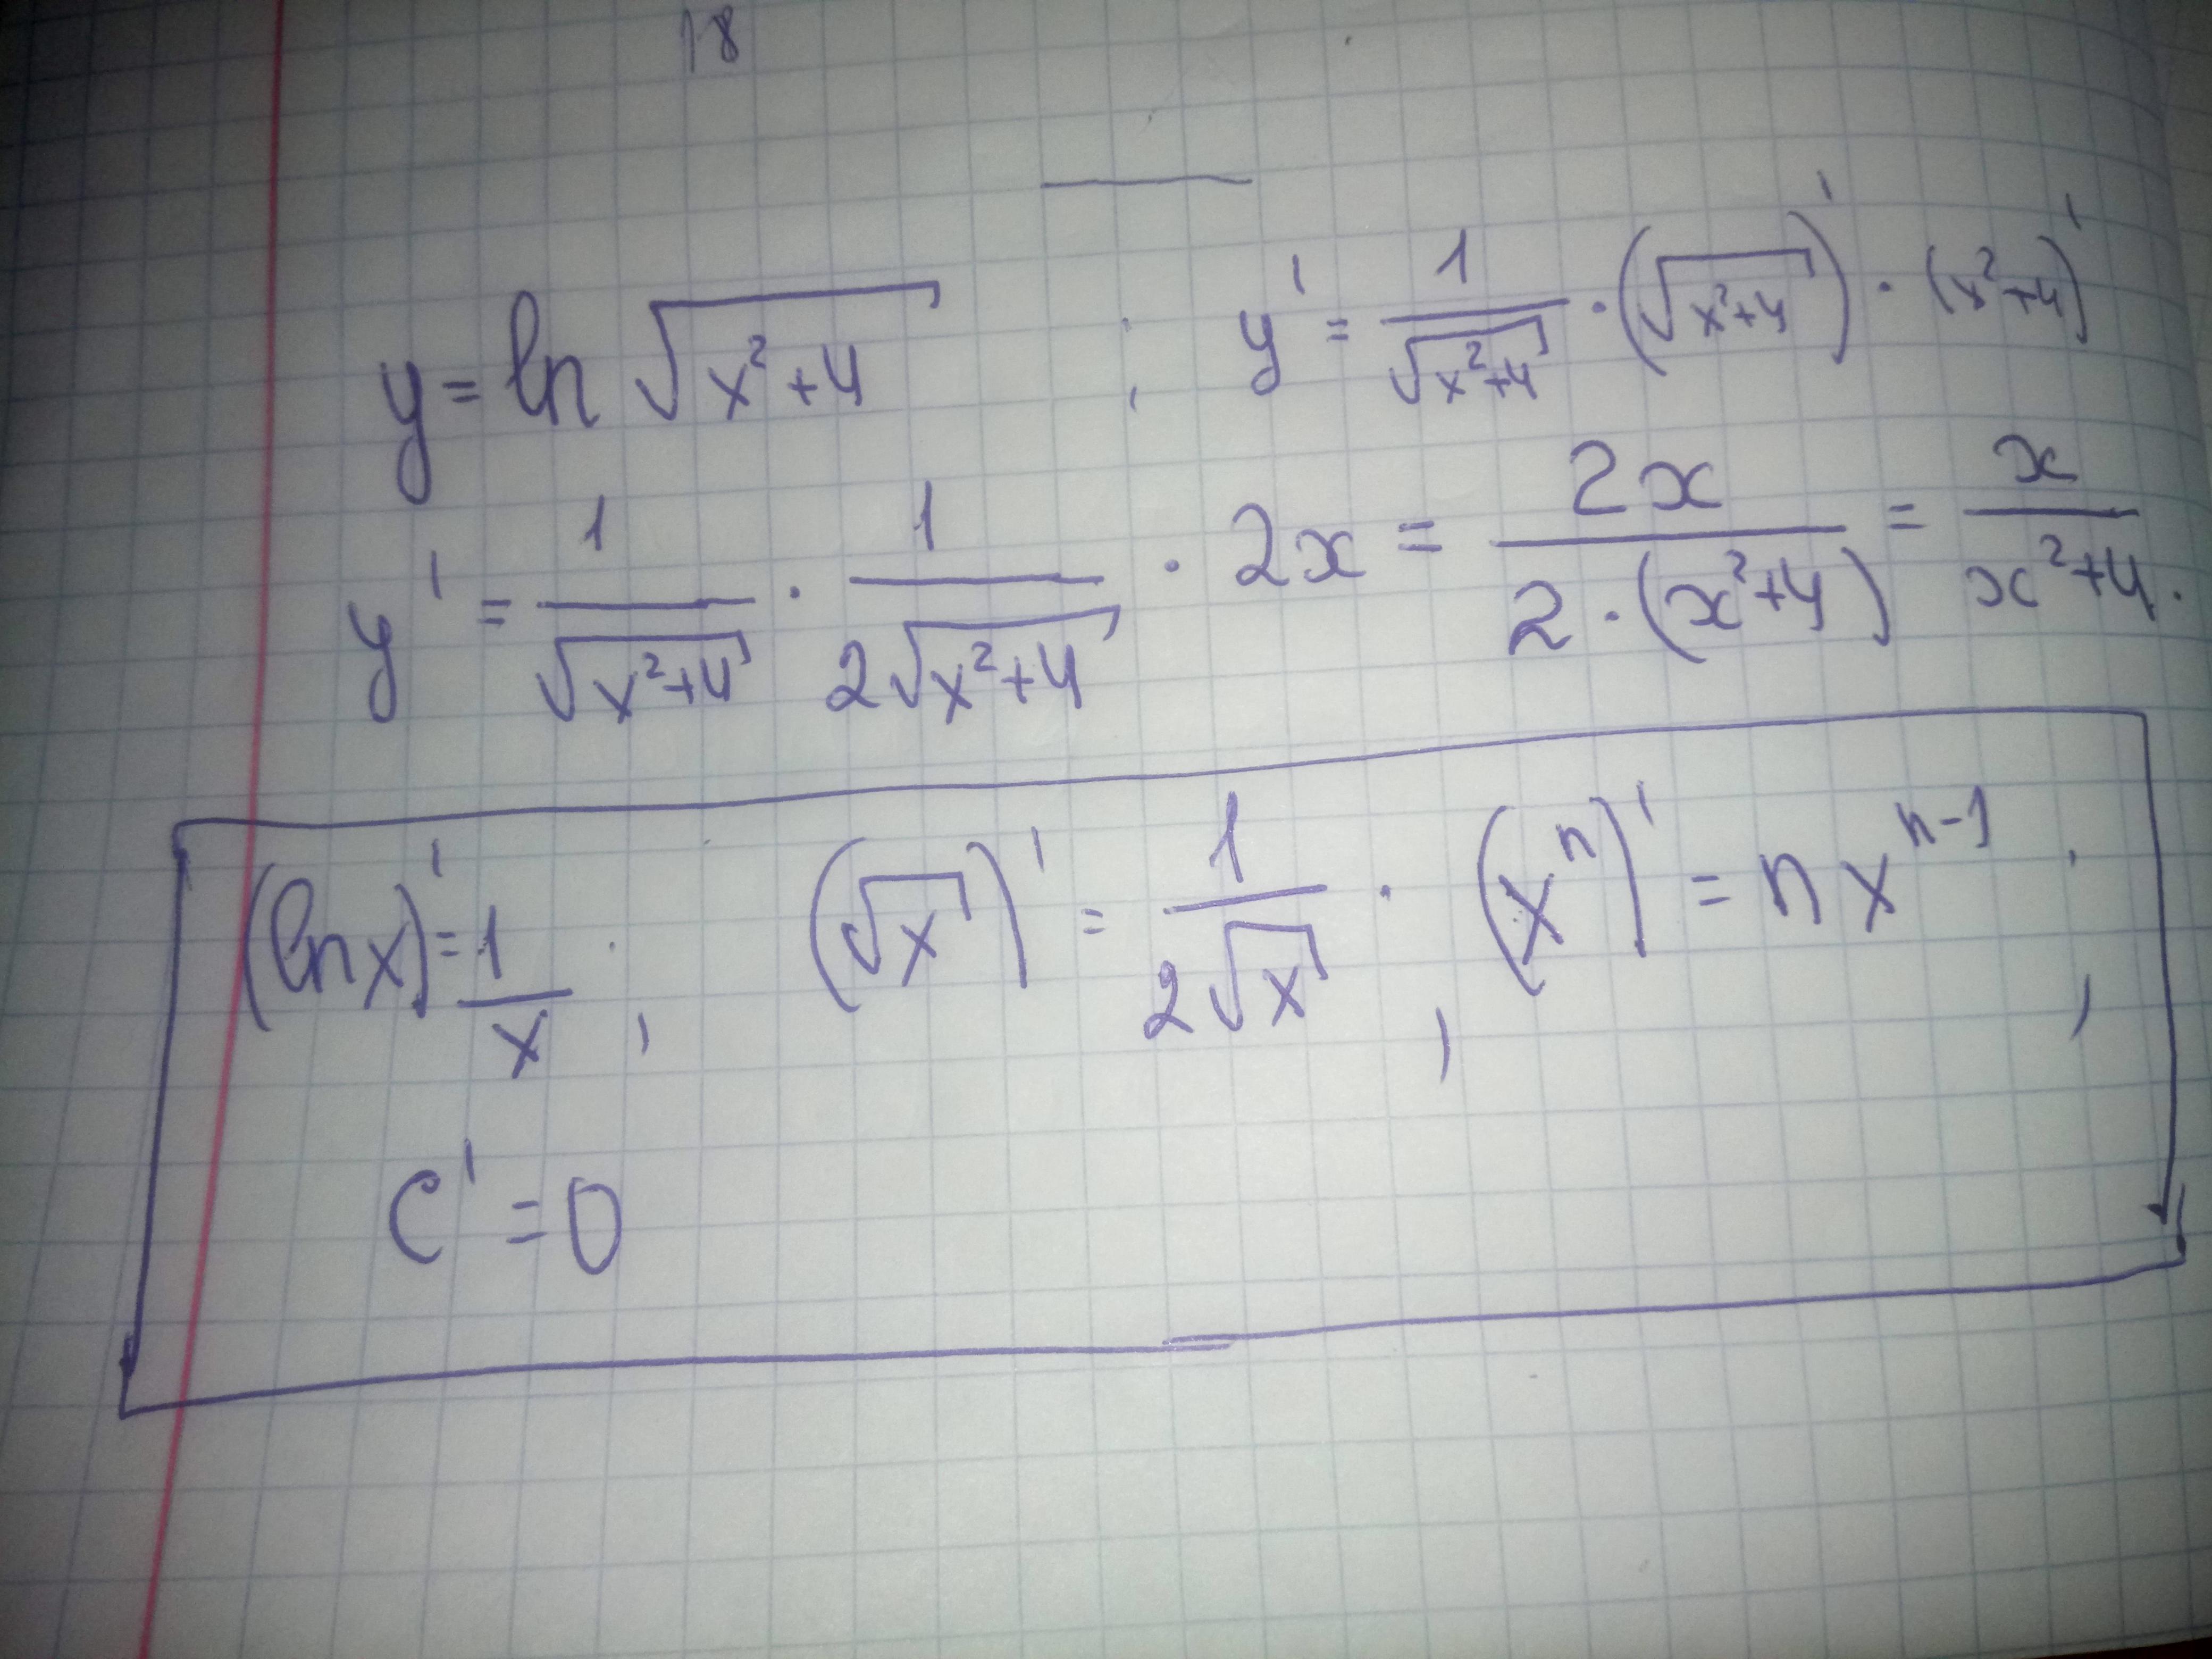 18
y = ln √(x²+4) ; y' = 1/√(x²+4) · (√(x²+4))' · (x²+4)'
y' = 1/√(x²+4) · 1/(2√(x²+4)) · 2x = 2x/(2·(x²+4)) = x/(x²+4).
(ln x)' = 1/x ; (√x)' = 1/(2√x) ; (xⁿ)' = n xⁿ⁻¹ ;
C' = 0